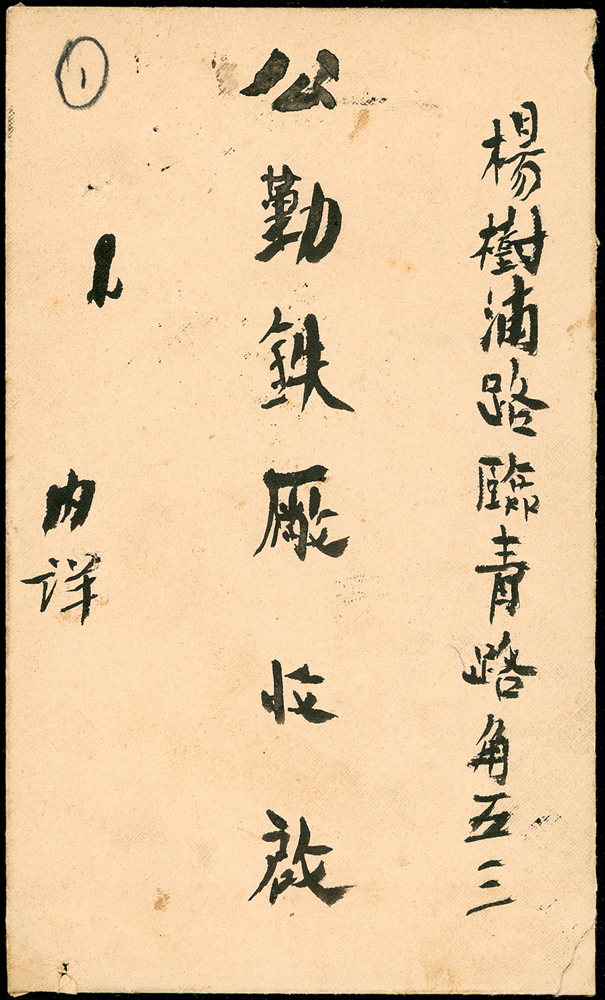 楊樹浦路臨青路角五三
公勤鉄廠收啟
内详
1